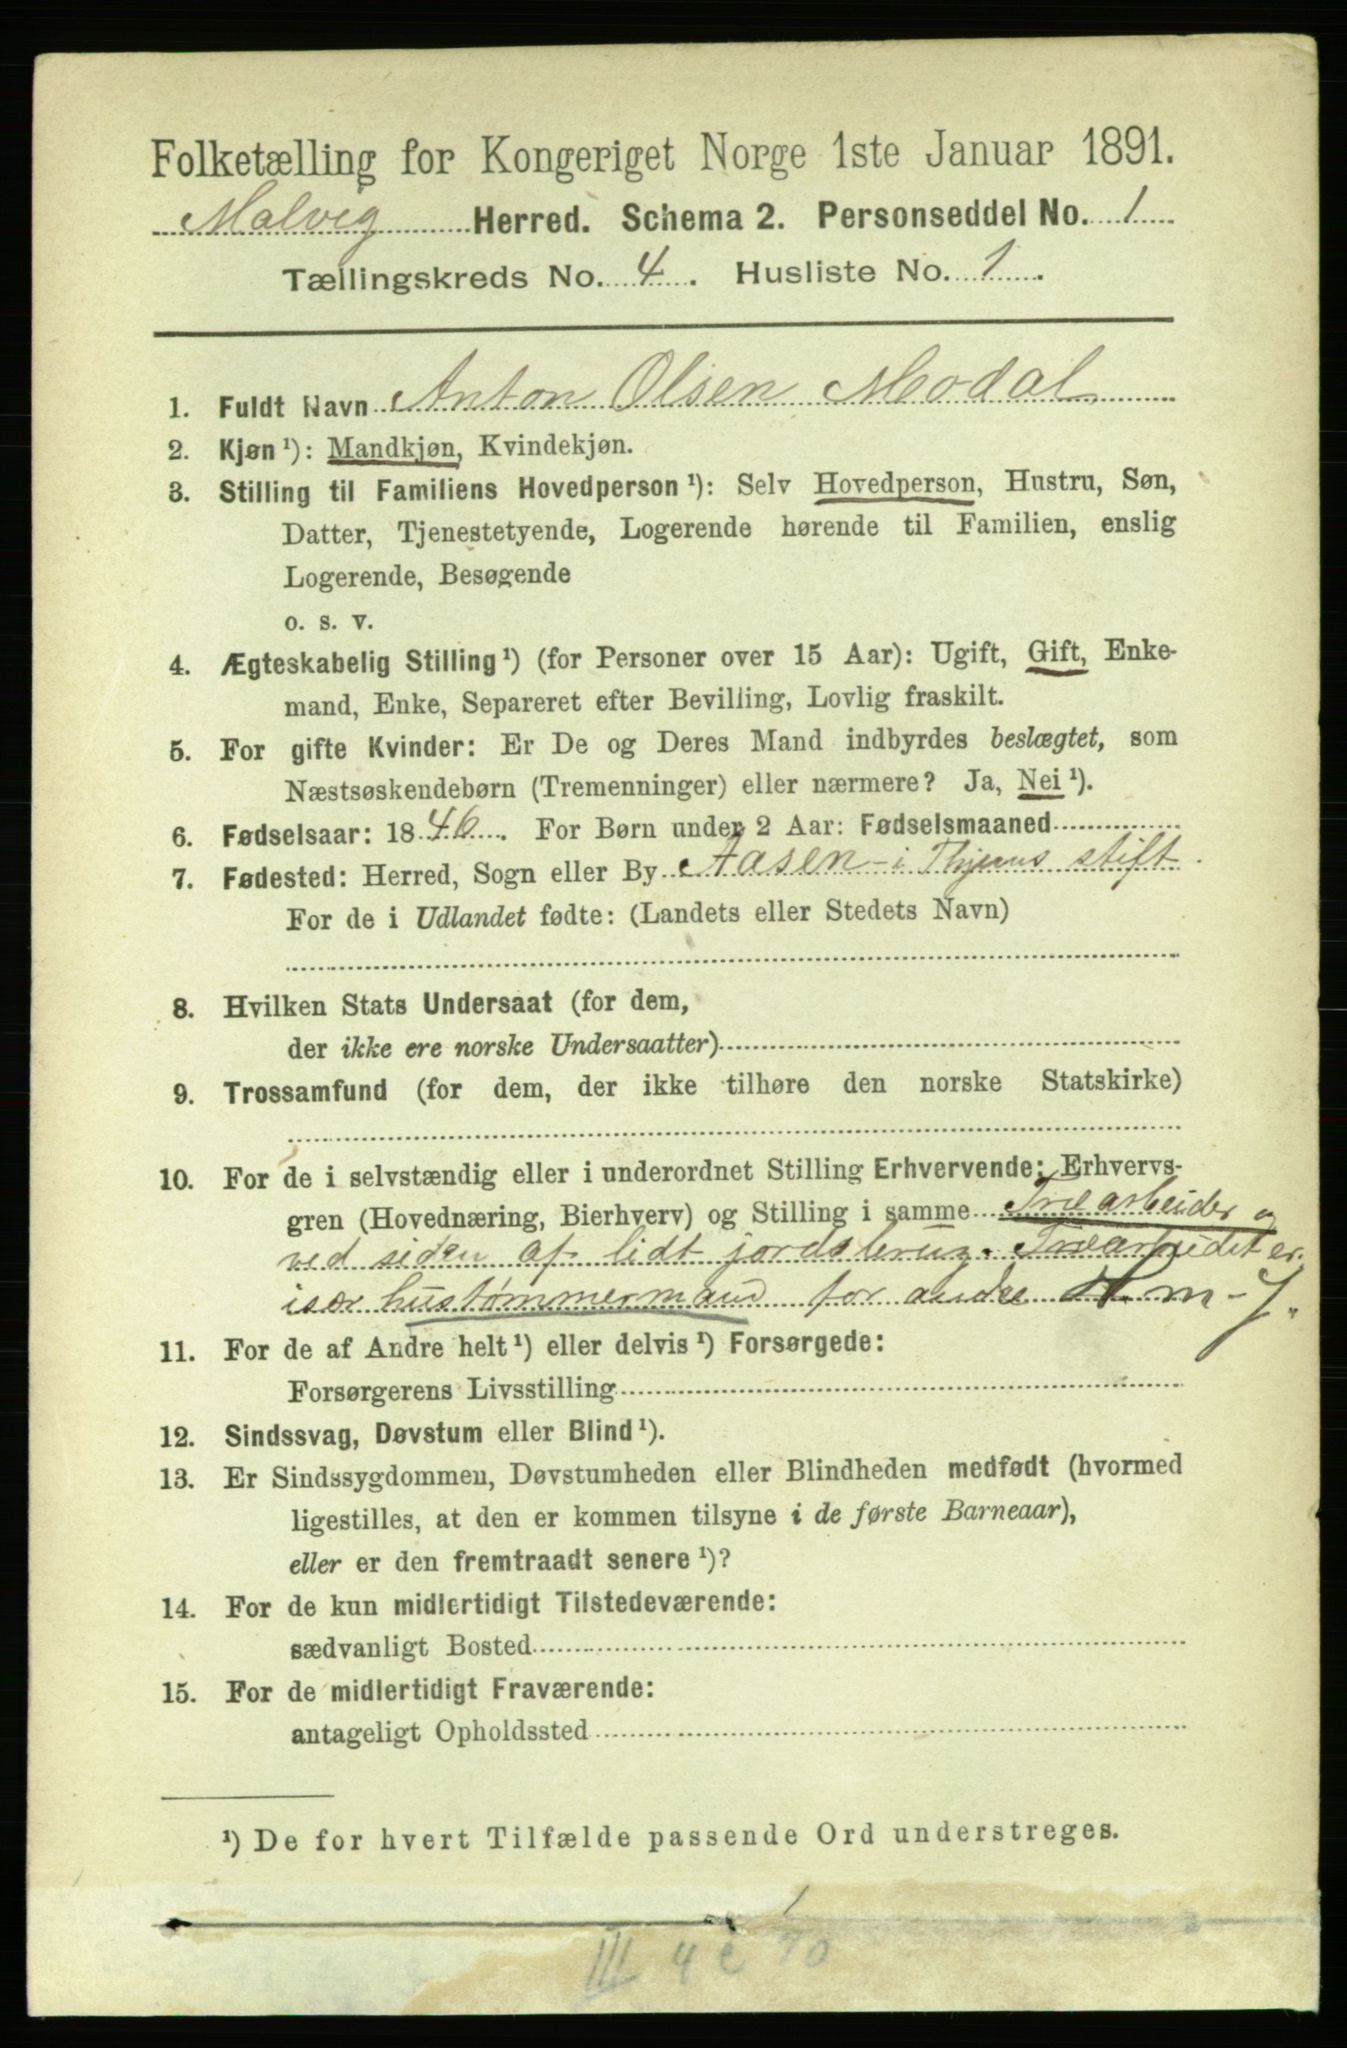 Folketælling for Kongeriget Norge 1ste Januar 1891.
Malvig Herred. Schema 2. Personseddel No. 1
Tællingskreds No. 4. Husliste No. 1.
1. Fuldt Navn Anton Olsen Modal
2. Kjøn ¹): Mandkjøn, Kvindekjøn.
3. Stilling til Familiens Hovedperson ¹): Selv Hovedperson, Hustru, Søn,
Datter, Tjenestetyende, Logerende hørende til Familien, enslig
Logerende, Besøgende
o. s. v.
4. Ægteskabelig Stilling ¹) (for Personer over 15 Aar): Ugift, Gift, Enke-
mand, Enke, Separeret efter Bevilling, Lovlig fraskilt.
5. For gifte Kvinder: Er De og Deres Mand indbyrdes beslægtet, som
Næstsøskendebørn (Tremenninger) eller nærmere? Ja, Nei ¹).
6. Fødselsaar: 1846. For Børn under 2 Aar: Fødselsmaaned
7. Fødested: Herred, Sogn eller By Aasen i Thjems stift.
For de i Udlandet fødte: (Landets eller Stedets Navn)
8. Hvilken Stats Undersaat (for dem,
der ikke ere norske Undersaatter)
9. Trossamfund (for dem, der ikke tilhøre den norske Statskirke)
10. For de i selvstændig eller i underordnet Stilling Erhvervende: Erhvervs-
gren (Hovednæring, Bierhverv) og Stilling i samme Træarbeider og
ved siden af lidt jordsbrug. Træarbeidet er
især hustømmermand for andre H. m-J.
11. For de af Andre helt ¹) eller delvis ¹) Forsørgede:
Forsørgerens Livsstilling
12. Sindssvag, Døvstum eller Blind ¹).
13. Er Sindssygdommen, Døvstumheden eller Blindheden medfødt (hvormed
ligestilles, at den er kommen tilsyne i de første Barneaar),
eller er den fremtraadt senere ¹)?
14. For de kun midlertidigt Tilstedeværende:
sædvanligt Bosted
15. For de midlertidigt Fraværende:
antageligt Opholdssted
¹) De for hvert Tilfælde passende Ord understreges.
III 4 c 70